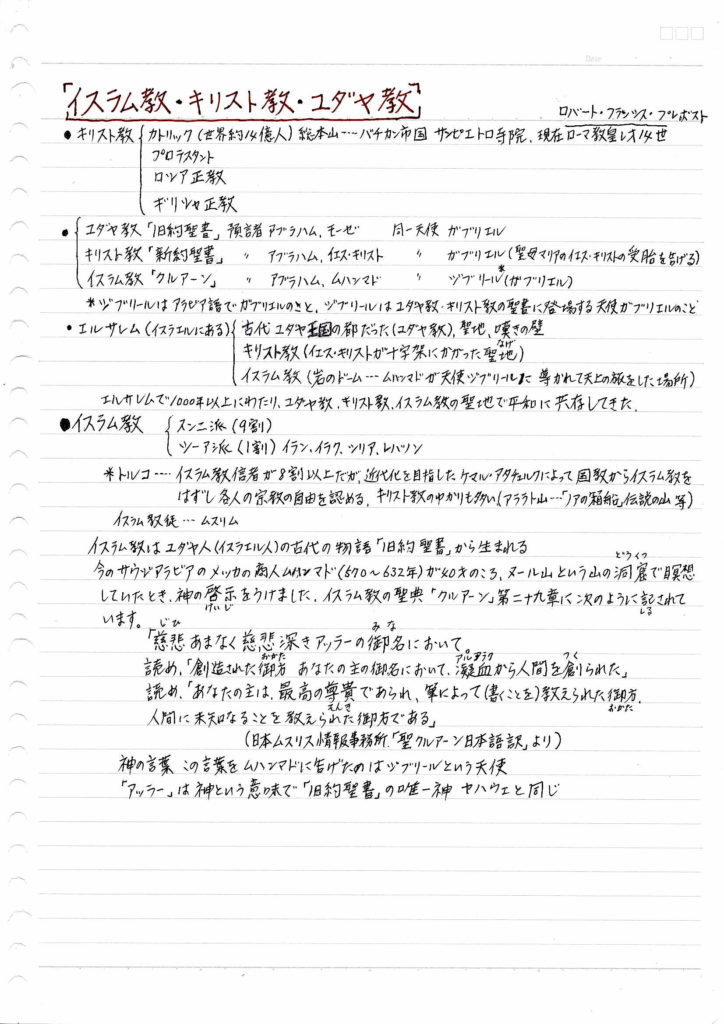 「イスラム教・キリスト教・ユダヤ教」
ロバート・フランシス・プレボスト
● キリスト教 カトリック (世界約14億人) 総本山…バチカン市国 サンピエトロ寺院、現在ローマ教皇レオ14世
プロテスタント
ロシア正教
ギリシャ正教
● ユダヤ教「旧約聖書」 預言者 アブラハム、モーゼ 同一天使 ガブリエル
キリスト教「新約聖書」 〃 アブラハム、イエス・キリスト 〃 ガブリエル (聖母マリアのイエス・キリストの受胎を告げる)
イスラム教「クルアーン」 〃 アブラハム、ムハンマド 〃 ジブリール* (ガブリエル)
*ジブリールはアラビア語でガブリエルのこと、ジブリールはユダヤ教・キリスト教の聖書に登場する天使ガブリエルのこと
● エルサレム (イスラエルにある) 古代ユダヤ王国の都だった (ユダヤ教)、聖地、嘆きの壁
なげ
キリスト教 (イエス・キリストが十字架にかかった聖地)
イスラム教 (岩のドーム…ムハンマドが天使ジブリールに導かれて天上の旅をした場所)
エルサレムで1000年以上にわたり、ユダヤ教、キリスト教、イスラム教の聖地で平和に共存してきた.
● イスラム教 スンニ派 (9割)
シーア派 (1割) イラン、イラク、シリア、レバノン
*トルコ…イスラム教信者が8割以上だが、近代化を目指したケマル・アタチュルクによって国教からイスラム教を
はずし各人の宗教の自由を認める、キリスト教のゆかりも多い (アララト山…「ノアの箱船」伝説の山 等)
イスラム教徒…ムスリム
イスラム教はユダヤ人 (イスラエル人) の古代の物語「旧約聖書」から生まれる
どうくつ
今のサウジアラビアのメッカの商人ムハンマド (570〜632年) が40才のころ、ヌール山という山の洞窟で瞑想
していたとき、神の啓示をうけました、イスラム教の聖典「クルアーン」第二十九章に次のように記されて
けいじ
しる
います。
じひ みな
「慈悲あまなく慈悲深きアッラーの御名において。
おかた アルアラク つく
読め、「創造された御方 あなたの主の御名において、凝血から人間を創られた」
読め、「あなたの主は、最高の尊貴であられ、筆によって(書くことを)教えられた御方、
そんき おかた
人間に未知なることを教えられた御方である」
(日本ムスリス情報事務所.「聖クルアーン日本語訳」より)
神の言葉 この言葉をムハンマドに告げたのはジブリールという天使
「アッラー」は神という意味で「旧約聖書」の唯一神 ヤハウェと同じ